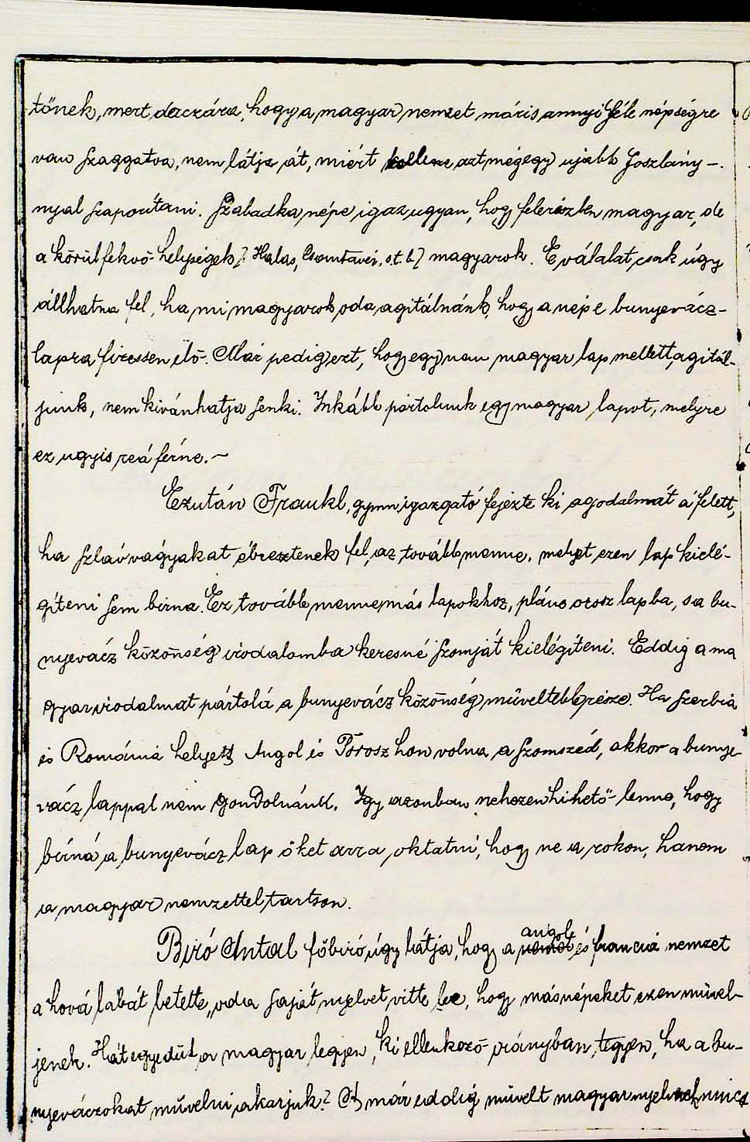 tőnek, mert daczára, hogy a magyar nemzet máris annyi féle népségre
van szaggatva, nem látja át, miért kellene azt mégegy ujabb foszlány-
nyal szaporítani. Szabadka népe igaz ugyan, hogy felerészben magyar, de
a körülfekvő helységek /: Halas, Csantavér, s.t.b. :/ magyarok. E vállalat csak úgy
állhatna fel, ha mi magyarok oda agitálnánk, hogy a nép e bunyevácz-
lapra fizessen elő. Már pedig ezt, hogy egy nem magyar lap mellett agitál-
junk, nem kivánhatja senki. Inkább pártolunk egy magyar lapot, melyre
ez ugyis reá férne. ~
Ezután Fraukl, gymn igazgató fejezte ki agodalmát a felett,
ha szláv vágyakat ébresztenek fel, az tovább menne, melyet ezen lap kielé-
gíteni sem birna. Ez tovább menne más lapokhoz, pláne orosz lapba, s a bu-
nyevácz közönség irodalomba keresné szomját kielégíteni. Eddig a ma
gyar irodalmat pártolá a bunyevácz közönség műveltebb része. Ha Szerbia
és Románia helyett Angol és Porosz hon volna a szomszéd, akkor a bunye-
vácz lappal nem gondolnánk. Igy azonban nehezen hihető lenne, hogy
birná a bunyevácz lap őket arra oktatni, hogy ne a rokon, hanem
a magyar nemzettel tartson.
angol
Biró Antal főbiró úgy látja, hogy a és franczia nemzet
a hová lábát betette, oda saját nyelvet vitte be, hogy másnépeket ezen művel-
jenek. Hát egyedül a magyar legyen, ki ellenkező irányban tegyen, ha a bu-
nyeváczokat művelni akarjuk? S már eddig művelt magyar nyelvnek nincs